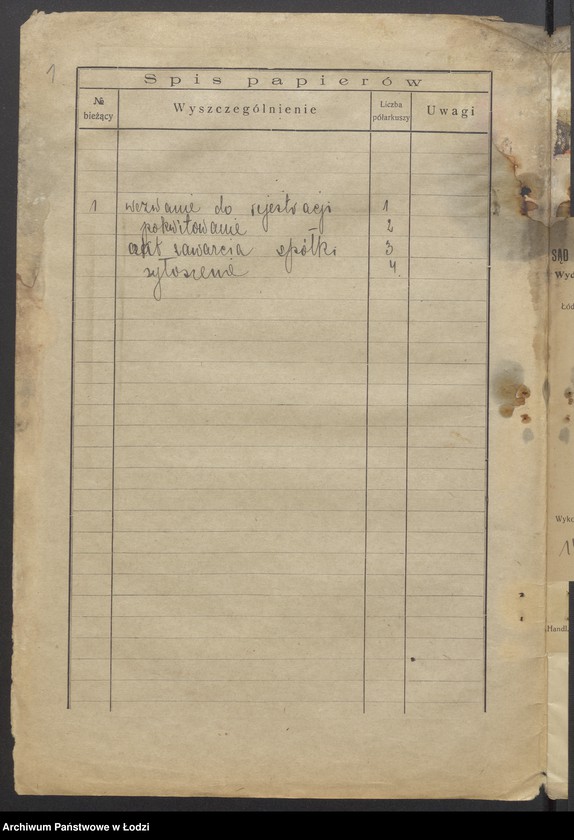 1
Spis papierów
№ bieżący Wyszczególnienie Liczba półarkuszy Uwagi
1 wezwanie do rejestracji 1
pokwitowanie 2
akt zawarcia spółki 3
zgłoszenie 4.
SĄD
Wyd
Łód
Wyko
Handl.
Archiwum Państwowe w Łodzi